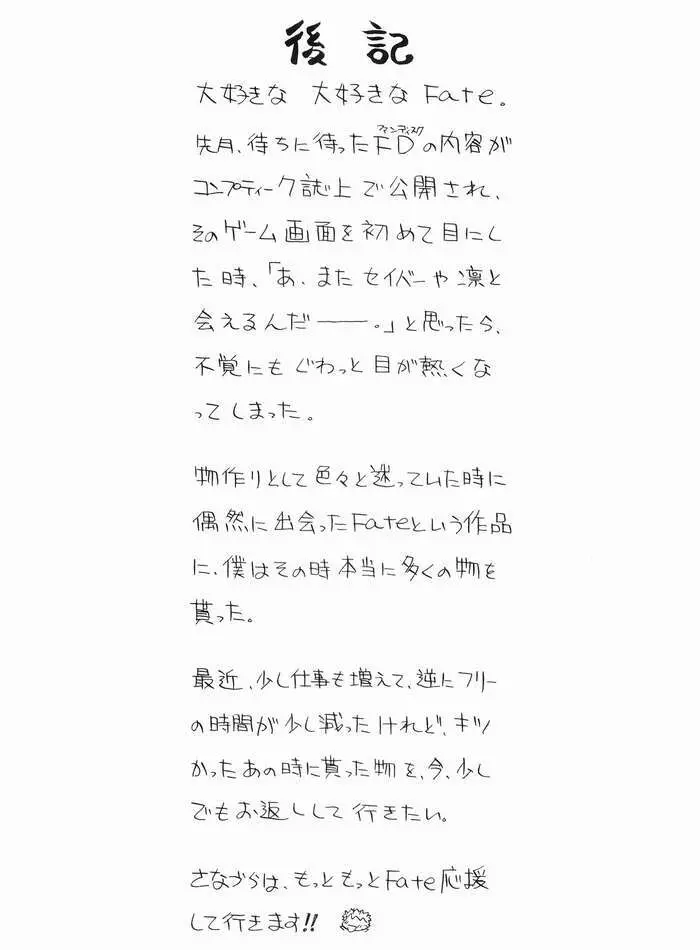 後記
大好きな 大好きなFate。
先月、待ちに待ったFDの内容が
ファンディスク
コンプティーク誌上で公開され、
そのゲーム画面を初めて目にし
た時、「あ、またセイバーや凛と
会えるんだ――。」と思ったら、
不覚にもぐわっと目が熱くな
ってしまった。
物作りとして色々と迷っていた時に
偶然に出会ったFateという作品
に、僕はその時本当に多くの物を
貰った。
最近、少し仕事も増えて、逆にフリー
の時間が少し減ったけれど、キツ
かったあの時に貰った物を、今、少し
でもお返しして行きたい。
さなづらは、もっともっとFate応援
して行きます!!